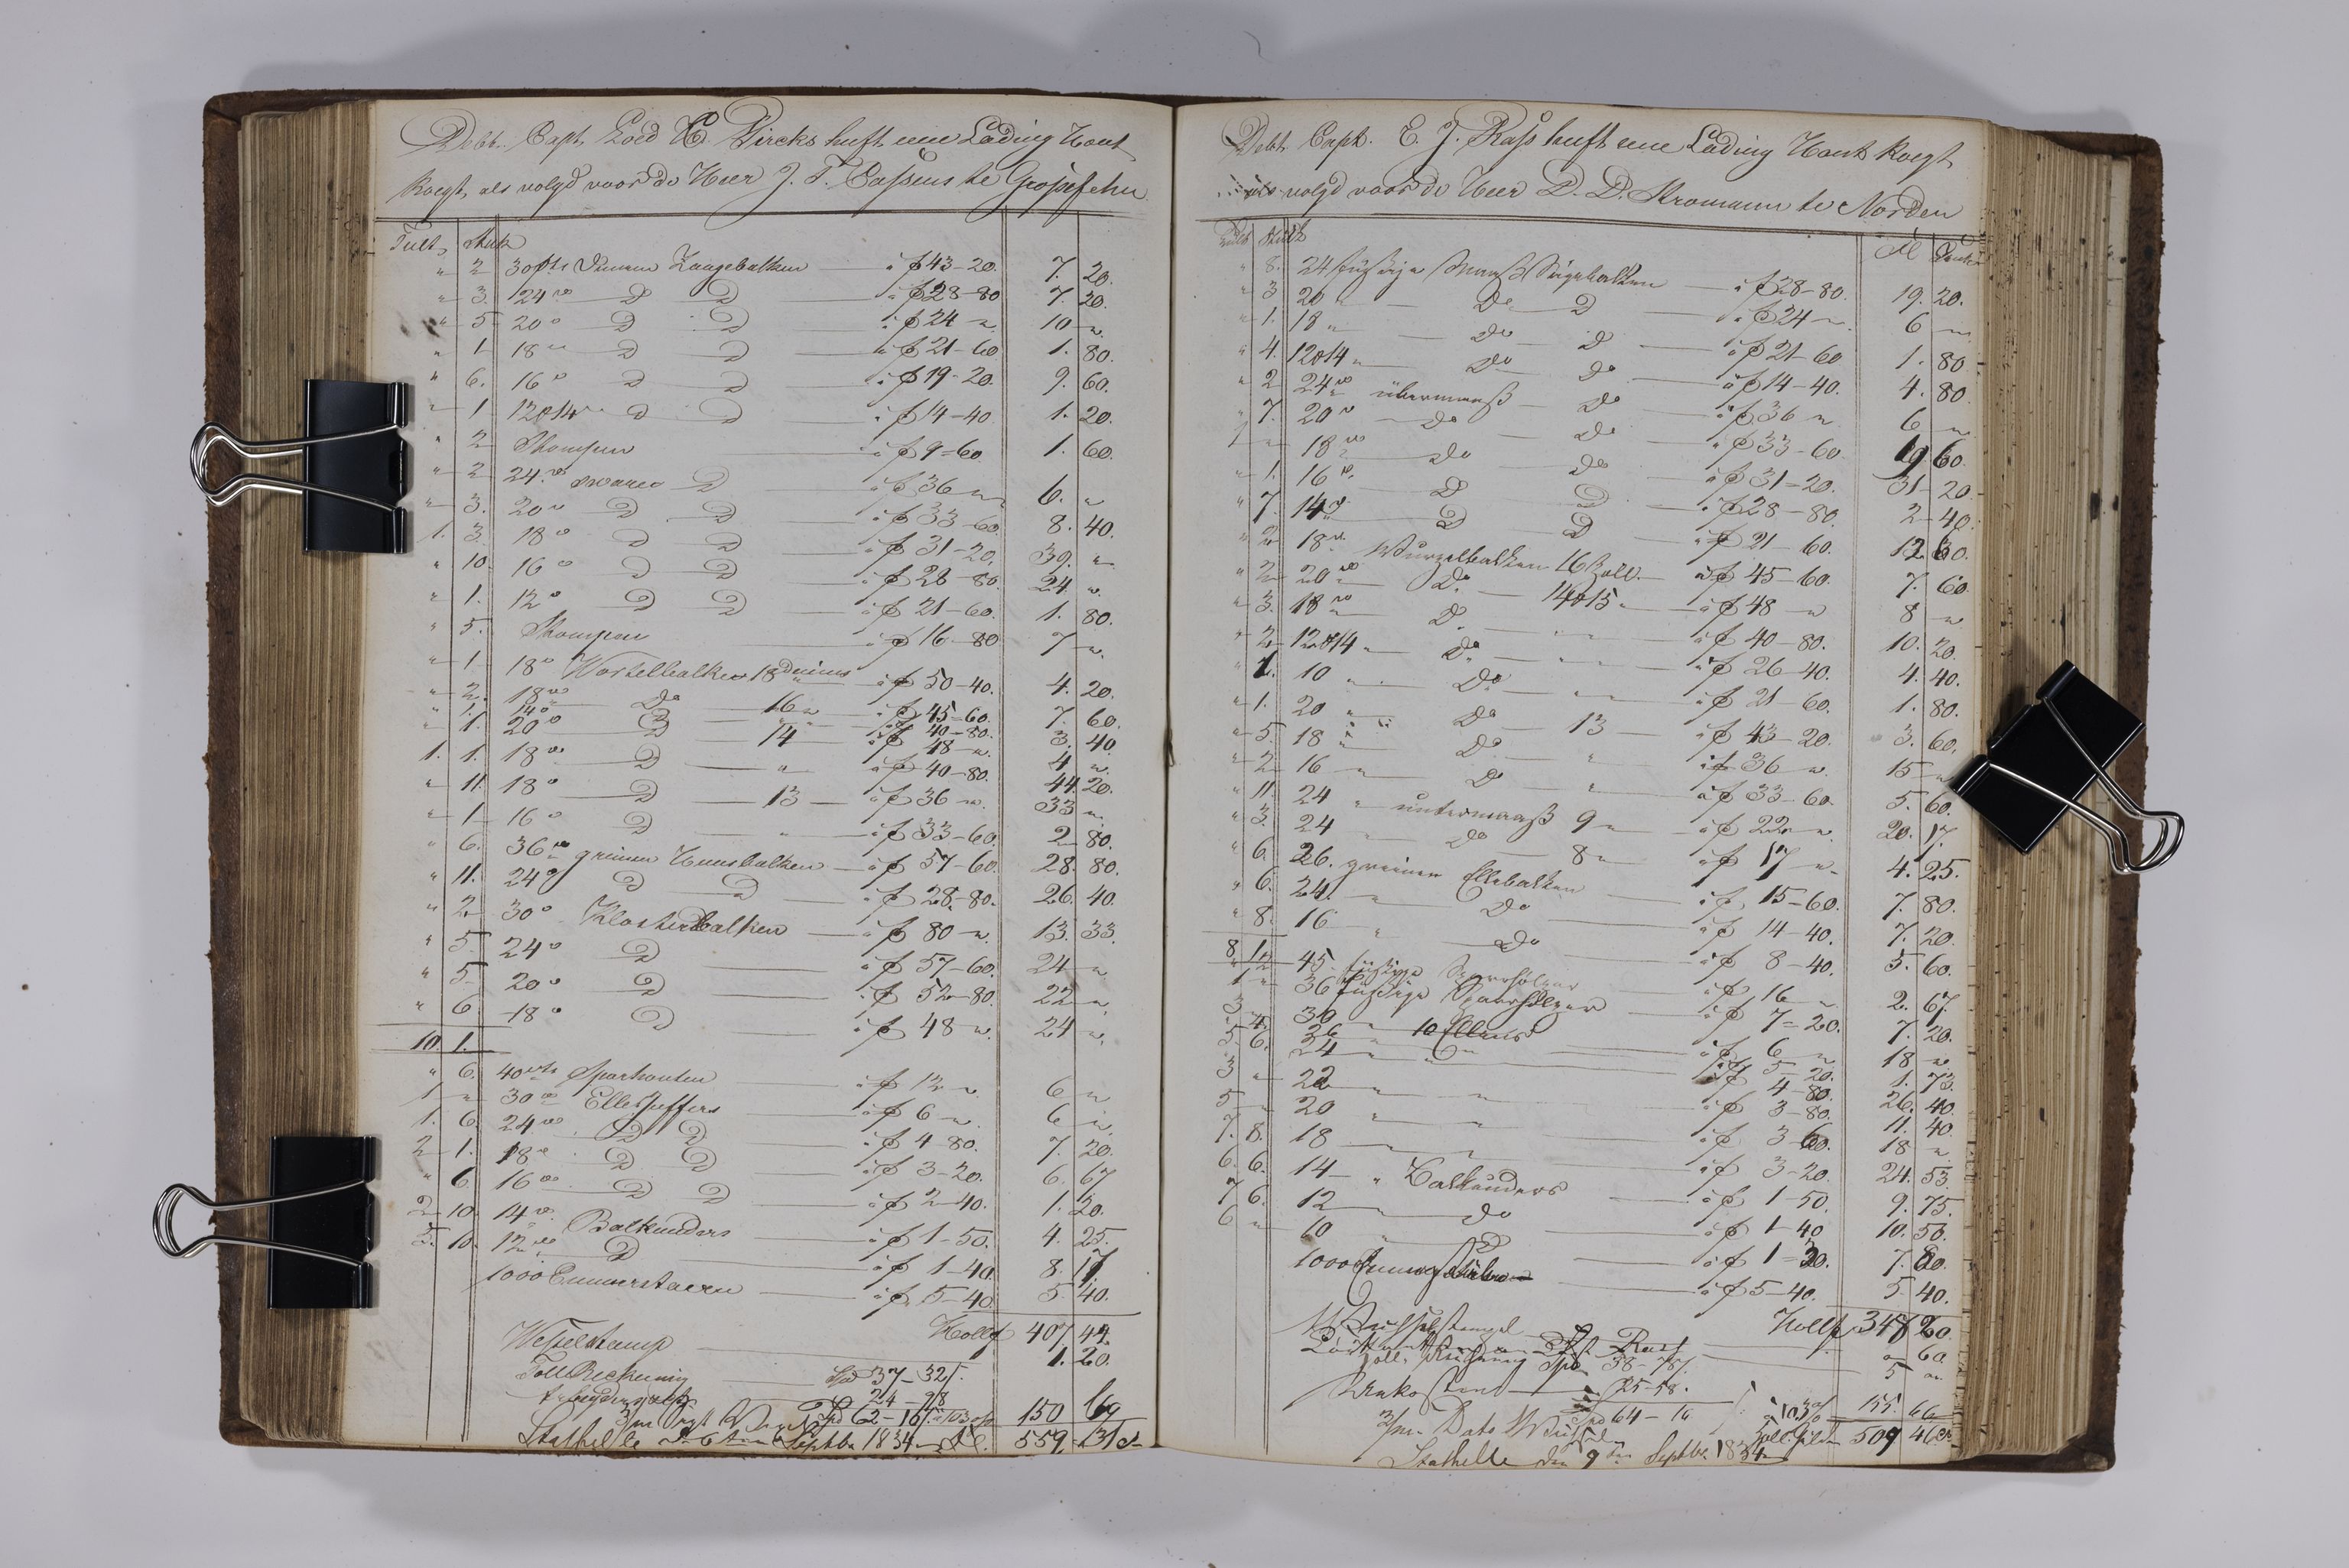 Debt. Capt. H. Dircks heeft eene Lading Hout
koegt, als volgd voor de Heer J. F. Cassens te Grossefehn
Tult, Stuk
" 2 30 Zaagebalken à f 43-20. 7. 20.
" 3. 24 " D D à f 28-80 7. 20.
" 5 20 " D D à f 24 - " 10 ".
" 1 18 " D D à f 21-60 1. 80.
" 6. 16 " D D à f 19-20. 9. 60.
" 1 12 à 14 " D D à f 14-40 1. 20.
" 2 Stompen à f 9-60 1. 60.
" 2 24 " sware D à f 36 " 6. "
" 3. 20 " D D à f 33-60 8. 40.
1. 3. 18 " D D à f 31-20. 39. "
" 10. 16 " D D à f 28-80 24. ".
" 1. 12 " D D à f 21-60. 1. 80.
" 5. Stompen à f 16-80 7 ".
" 1 18 " Wortelbalken 18 duims à f 50-40. 4. 20.
" 2. 18 " Do 16 " à f 45-60. 7. 60.
" 1. 14 " à f 40-80. 3. 40.
" 1. 20 " D 14 à f 48 ". 4 ".
1. 1. 18 " D " à f 40-80. 44. 20.
" 11. 18 " D 13 à f 36 ". 33 ".
" 1 16 " D " à f 33-60. 2 80.
" 6. 36 " greinen Huusbalken à f 57-60. 28. 80.
" 11. 24 " D D à f 28-80. 26. 40.
" 2. 30 " Klosterbalken à f 80 ". 13. 33.
" 5 24 " D à f 57-60. 24 "
" 5 20 " D à f 52-80. 22 ".
" 6 18 " D à f 48 ". 24 ".
10. 1.
" 6. 40 Sparhouten à f 12 ". 6 "
1 " 30 " Ellespeffers à f 6 ". 6 ".
1. 6. 24 " D D à f 4 80. 7. 20.
2 1. 18 " D D à f 3-20. 6. 67
" 6 16 " D D à f 2-40. 1. 20.
2 10. 14 " Balkunders à f 1-50. 4. 25.
5. 10. 12 " D à f 1-40. 8. 17
1000 Emmerstaeven à f 5-40. 5. 40.
Hollf 407 42.
Wesselstamp 1. 20.
Toll Reckening Spd 37-32.
24-98
Spd 62-10 150 69
Stathelle Septbr 1834 559 31
Debt. Capt. E. J. Rass heeft eene Lading Hout koegt
als volgd voor de Heer D. D. Stromann te Norden
Tult Stük
" 8. 24 füssige Maass Sägebalken à f 28-80. 19. 20.
" 3 20 " Do D à f 24 ". 6 "
" 1. 18 " Do D à f 21-60 1. 80
" 4. 12 à 14 " Do Do à f 14-40. 4. 80
" 2 24 " übermaass Do à f 36 " 6 "
" 7. 20 " Do Do à f 33-60. 19 60
1 " 18 " Do Do à f 31-20. 31-20
" 1. 16 " D D à f 28-80. 2-40.
" 7. 14 " D D à f 21-60. 12 60.
" 2 18 " Wurzelbalken 16 Zoll à f 45-60. 7. 60
" 2 20 " Do 14 à 15 " à f 48 " 8 "
" 3. 18 " D. " à f 40-80. 10. 20.
" 2 12 à 14 " Do " à f 26-40. 4. 40.
" 1. 10 " Do " à f 21-60. 1. 80.
" 1. 20 " Do 13 à f 43-20. 3. 60.
" 5 18 " Do " à f 36 ". 15 "
" 2 16 " D " à f 33-60 5. 60.
" 11. 24 " untermaass 9 " à f 22 ". 20. 17.
" 3. 24 " Do 8 " à f 17 ". 4. 25.
" 6. 26. greinen Ellebalken à f 15-60. 7. 80.
" 6. 24. " Do à f 14-40. 7. 20.
" 8. 16 " Do à f 8-40. 5. 60.
8 1.
" 2 45 füssige Sparrhölzer à f 16 " 2. 67.
1 " 36 füssige Sparrhölzer à f 7-20. 7. 20.
3 " 30 " 10 Ellens à f 6 " 18 "
" 4. 26 à f 5-20. 1. 73.
5 6. 24 " à f 4-80. 26. 40.
3 " 22 " à f 3-80. 11. 40
5 " 20 " à f 3 60. 18 ".
7. 8. 18 " à f 3-20 24. 53.
6. 6. 14 " Balkunders à f 1-50. 9. 75.
7 6. 12 " do à f 1-40 10. 50.
6 " 10 D à f 1-30. 7. 80.
1000 à f 5-40. 5. 40.
Hollf 347 20.
" 60
Zoll Spd 38-78 5 "
Unkosten 25-58.
3/m. Dato Spd 64-16 155. 66
509 46
Stathelle den 9 Septbr. 1834